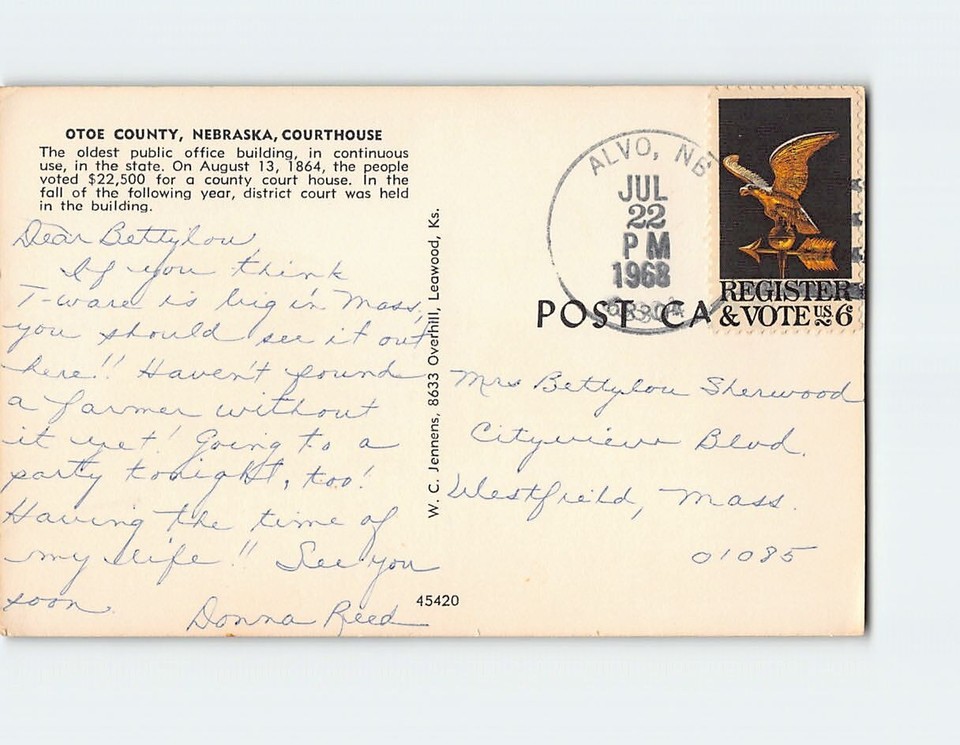 OTOE COUNTY, NEBRASKA, COURTHOUSE
The oldest public office building, in continuous
use, in the state. On August 13, 1864, the people
voted $22,500 for a county court house. In the
fall of the following year, district court was held
in the building.
Dear Bettylou,
If you think
T-ware is big in Mass,
you should see it out
here!! Haven't found
a farmer without
it yet! Going to a
party tonight, too!
Having the time of
my life!! See you
soon.
Donna Reed
W. C. Jennens, 8633 Overhill, Leawood, Ks.
45420
ALVO, NB
JUL
22
PM
1968
POST CA
REGISTER
& VOTE US 6c
Mrs Bettylou Sherwood
Cityview Blvd.
Westfield, Mass.
01085